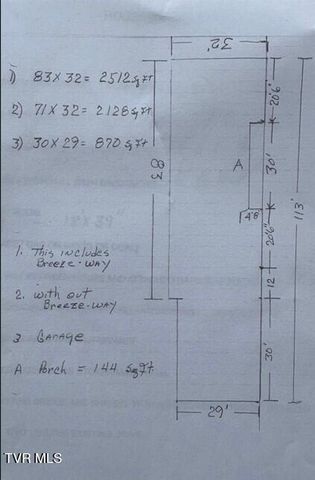 32'
1) 83 X 32 = 2512 sq ft
2) 71 X 32 = 2128 sq ft
3) 30 X 29 = 870 sq ft
83
20'6"
A
30'
4'8
113'
20'6"
12
1. This includes
Breeze-way
2. with out
Breeze-way
3 Garage
30'
A Porch = 144 sq ft
29'
TVR MLS